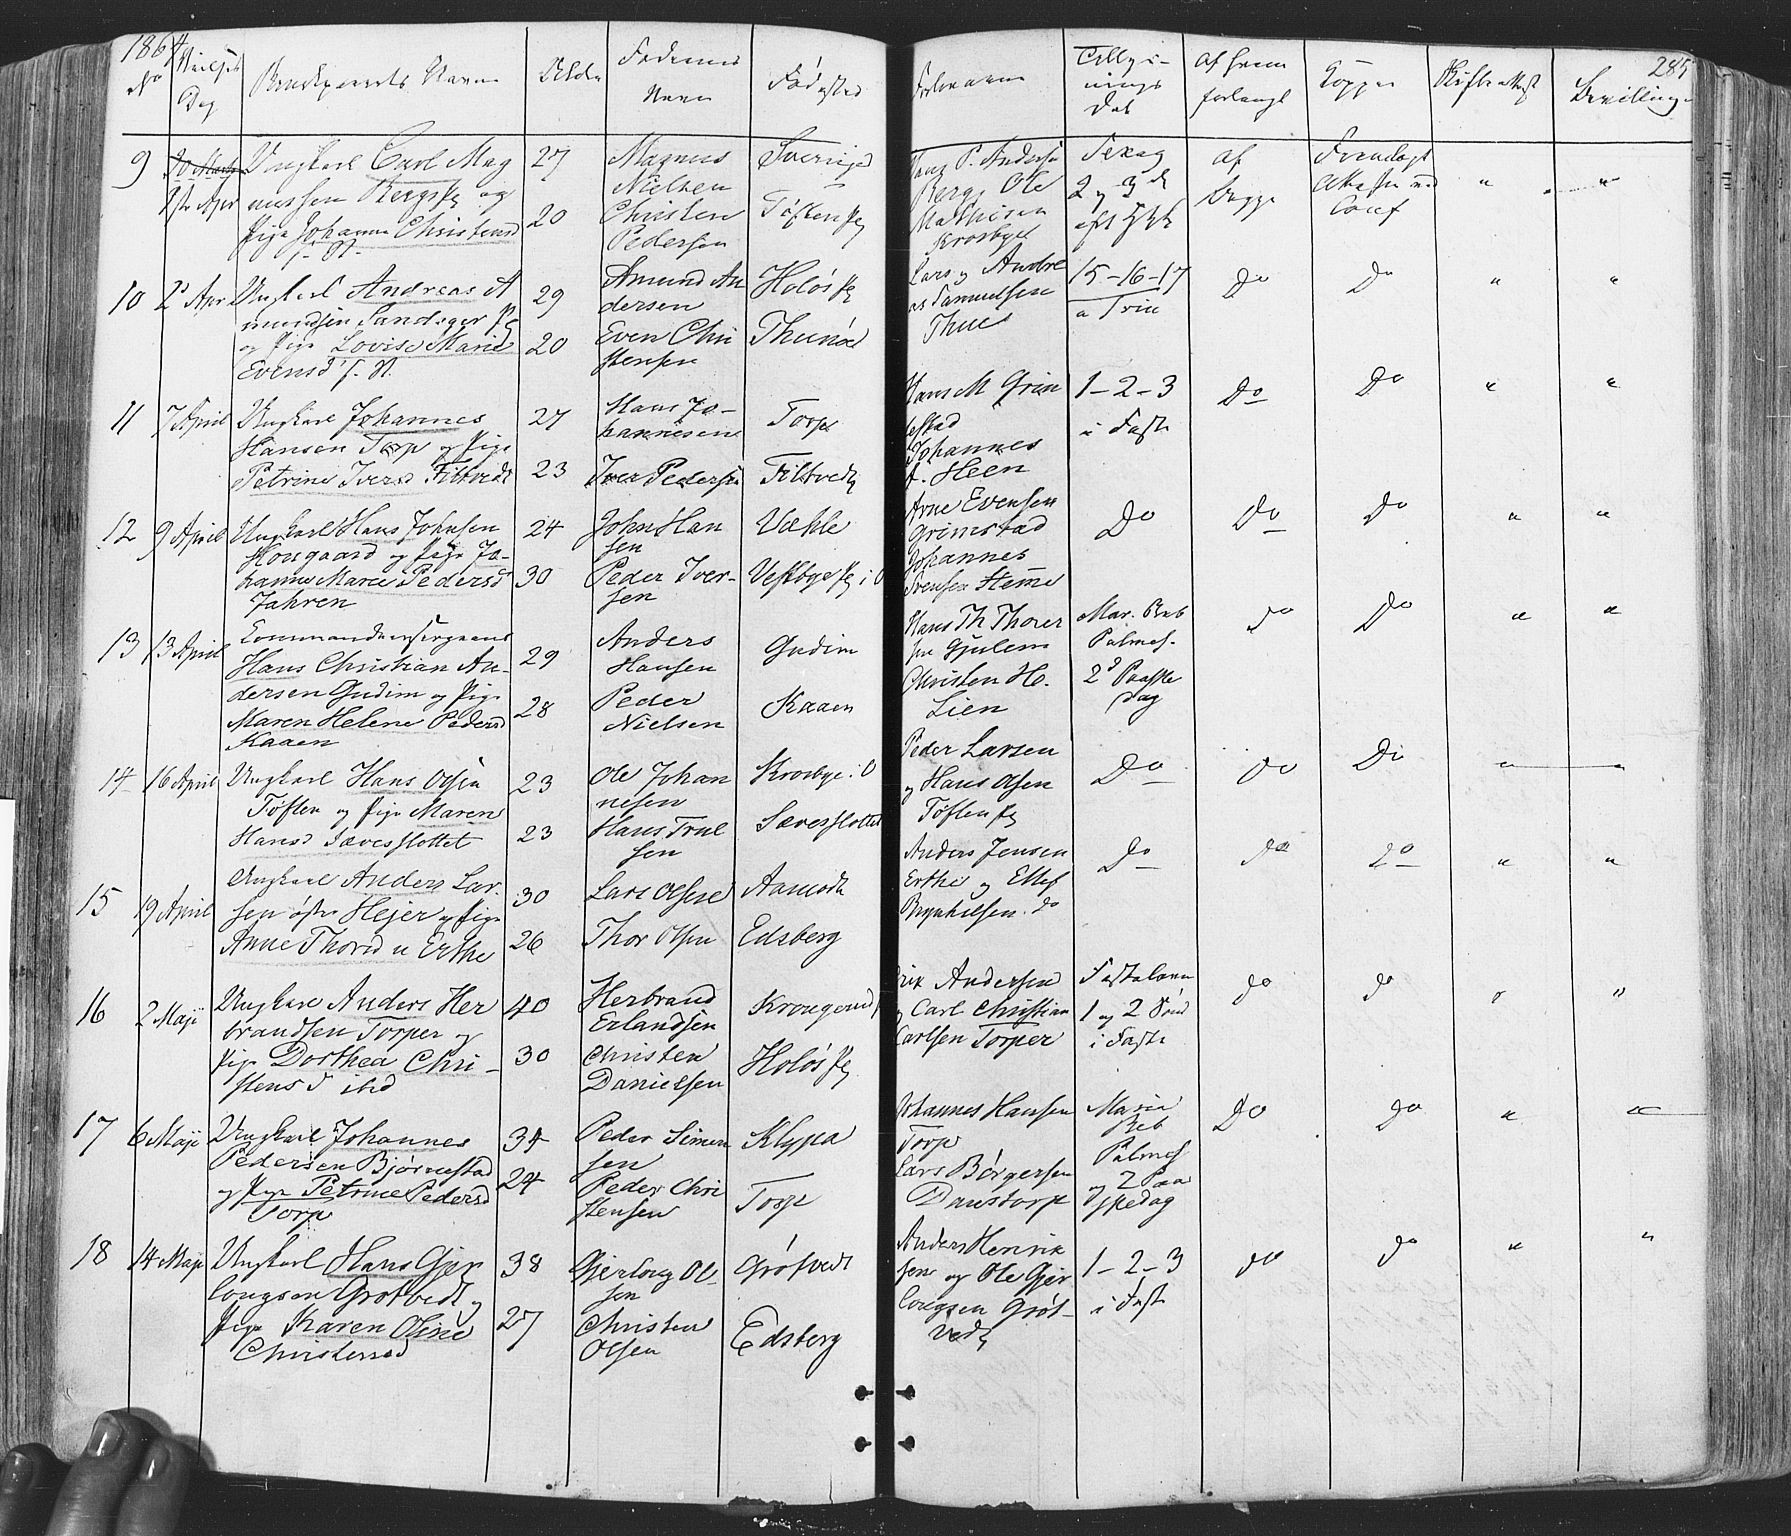 1864
No
Vielses
Dag
Brudeparrets Navne
Alder
Faderens
Navn
Fødested
Forlovere
Tillys-
nings
Dat
Af hvem
forlangt
Kopper
Skiftebevist
Bevilling
285
9
20 Marts
1ste Apr
Ungkarl Carl Mag
nussen Bergspl og
Pige Johanne Christensd
f. N.
27
20
Magnus
Nielsen
Christen
Pedersen
Sverige
Tøftenpl
Hans P. Andersen
Berg, Ole
Mathisen
Krosbye
2 og 3 d
eft H3K
af
begge
Fremlagt
Attester ved
Conf
"
"
10
2 Apr
Ungkarl Andreas A
mundsen Sandager pl
og Pige Lovise Marie
Evensd f. N.
29
20
Amund An
dersen
Even Chri
stensen
Holøspl
Thunøe
Lars og Andre
as Samuelsen
Thues
15-16-17
a Trin
Do
Do
"
"
11
7 April
Ungkarl Johannes
Hansen Torp og Pige
Petrine Iversd Filtvedt
27
23
Hans Jo-
hannesen
Iver Pedersen
Torp
Filtvedt
Hans M Grim
stad
Johannes
A. Heen
1-2-3
i Faste
Do
Do
"
"
12
9 April
Ungkarl Hans Johnsen
Hovgaard og Pige Jo-
hanne Maree Pedersd
Jahren
24
30
John Han
sen
Peder Iver-
sen
Væhle
Vestbyepl i O
Arne Evensen
Grimstad
Johannes
Svensen Heme
Do
Do
Do
"
"
13
13 April
Commandeersergeant
Hans Christian An-
dersen Gudim og Pige
Maren Helene Pedersd
Kaaen
29
28
Anders
Hansen
Peder
Nielsen
Gudim
Kaaen
Hans Th Thorer
sen Gjulem
Christen He.
Lien
Mar. Beb
Palmes-
2d Paaske
dag
Do
Do
"
"
14
16 April
Ungkarl Hans Olsen
Tøften og Pige Maren
Hansd Sævesslottet
23
23
Ole Johan
nesen
Hans Trul
sen
Krosbye i O
Sævesslottet
Peder Larsen
og Hans Olsen
Tøftenpl
Do
Do
Do
"
"
15
19 April
Ungkarl Anders Lar-
sen østre Hejer og Pige
Anne Thorsd n Erthe
30
26
Lars Olsen
Thor Olsen
Aamodt
Edsberg
Anders Jensen
Erthe og Ellef
Brynhilsen do
Do
Do
Do
"
"
16
2 Maji
Ungkarl Anders Her
brandsen Torper og
Pige Dorthea Chri-
stensd ibid
40
30
Herbrand
Erlandsen
Christen
Danielsen
Holøspl
Erik Andersen
og Carl Christian
Carlsen Torper
Fastelavn
1 og 2 Sønd
i Faste
Do
Do
"
"
17
6 Maji
Ungkarl Johannes
Pedersen Bjørnestad
og Pige Petrine Pedersd
Torp
34
24
Peder Simen
sen
Peder Chri
stensen
Klypa
Torp
Johannes Hansen
Torp
Lars Børgersen
Danstorp
Maria
Beb
Palmes
og 2 Paa
skedag
Do
Do
"
"
18
14 Maji
Ungkarl Hans Gjer
lougsen Grøtvedt og
Pige Karen Oline
Christensd
38
27
Gjerloug Ol-
sen
Christen
Olsen
Grøtvedt
Edsberg
Anders Henrik
sen og Ole Gjer
lougsen Grøt-
vedt
1-2-3
i Faste
Do
Do
"
"